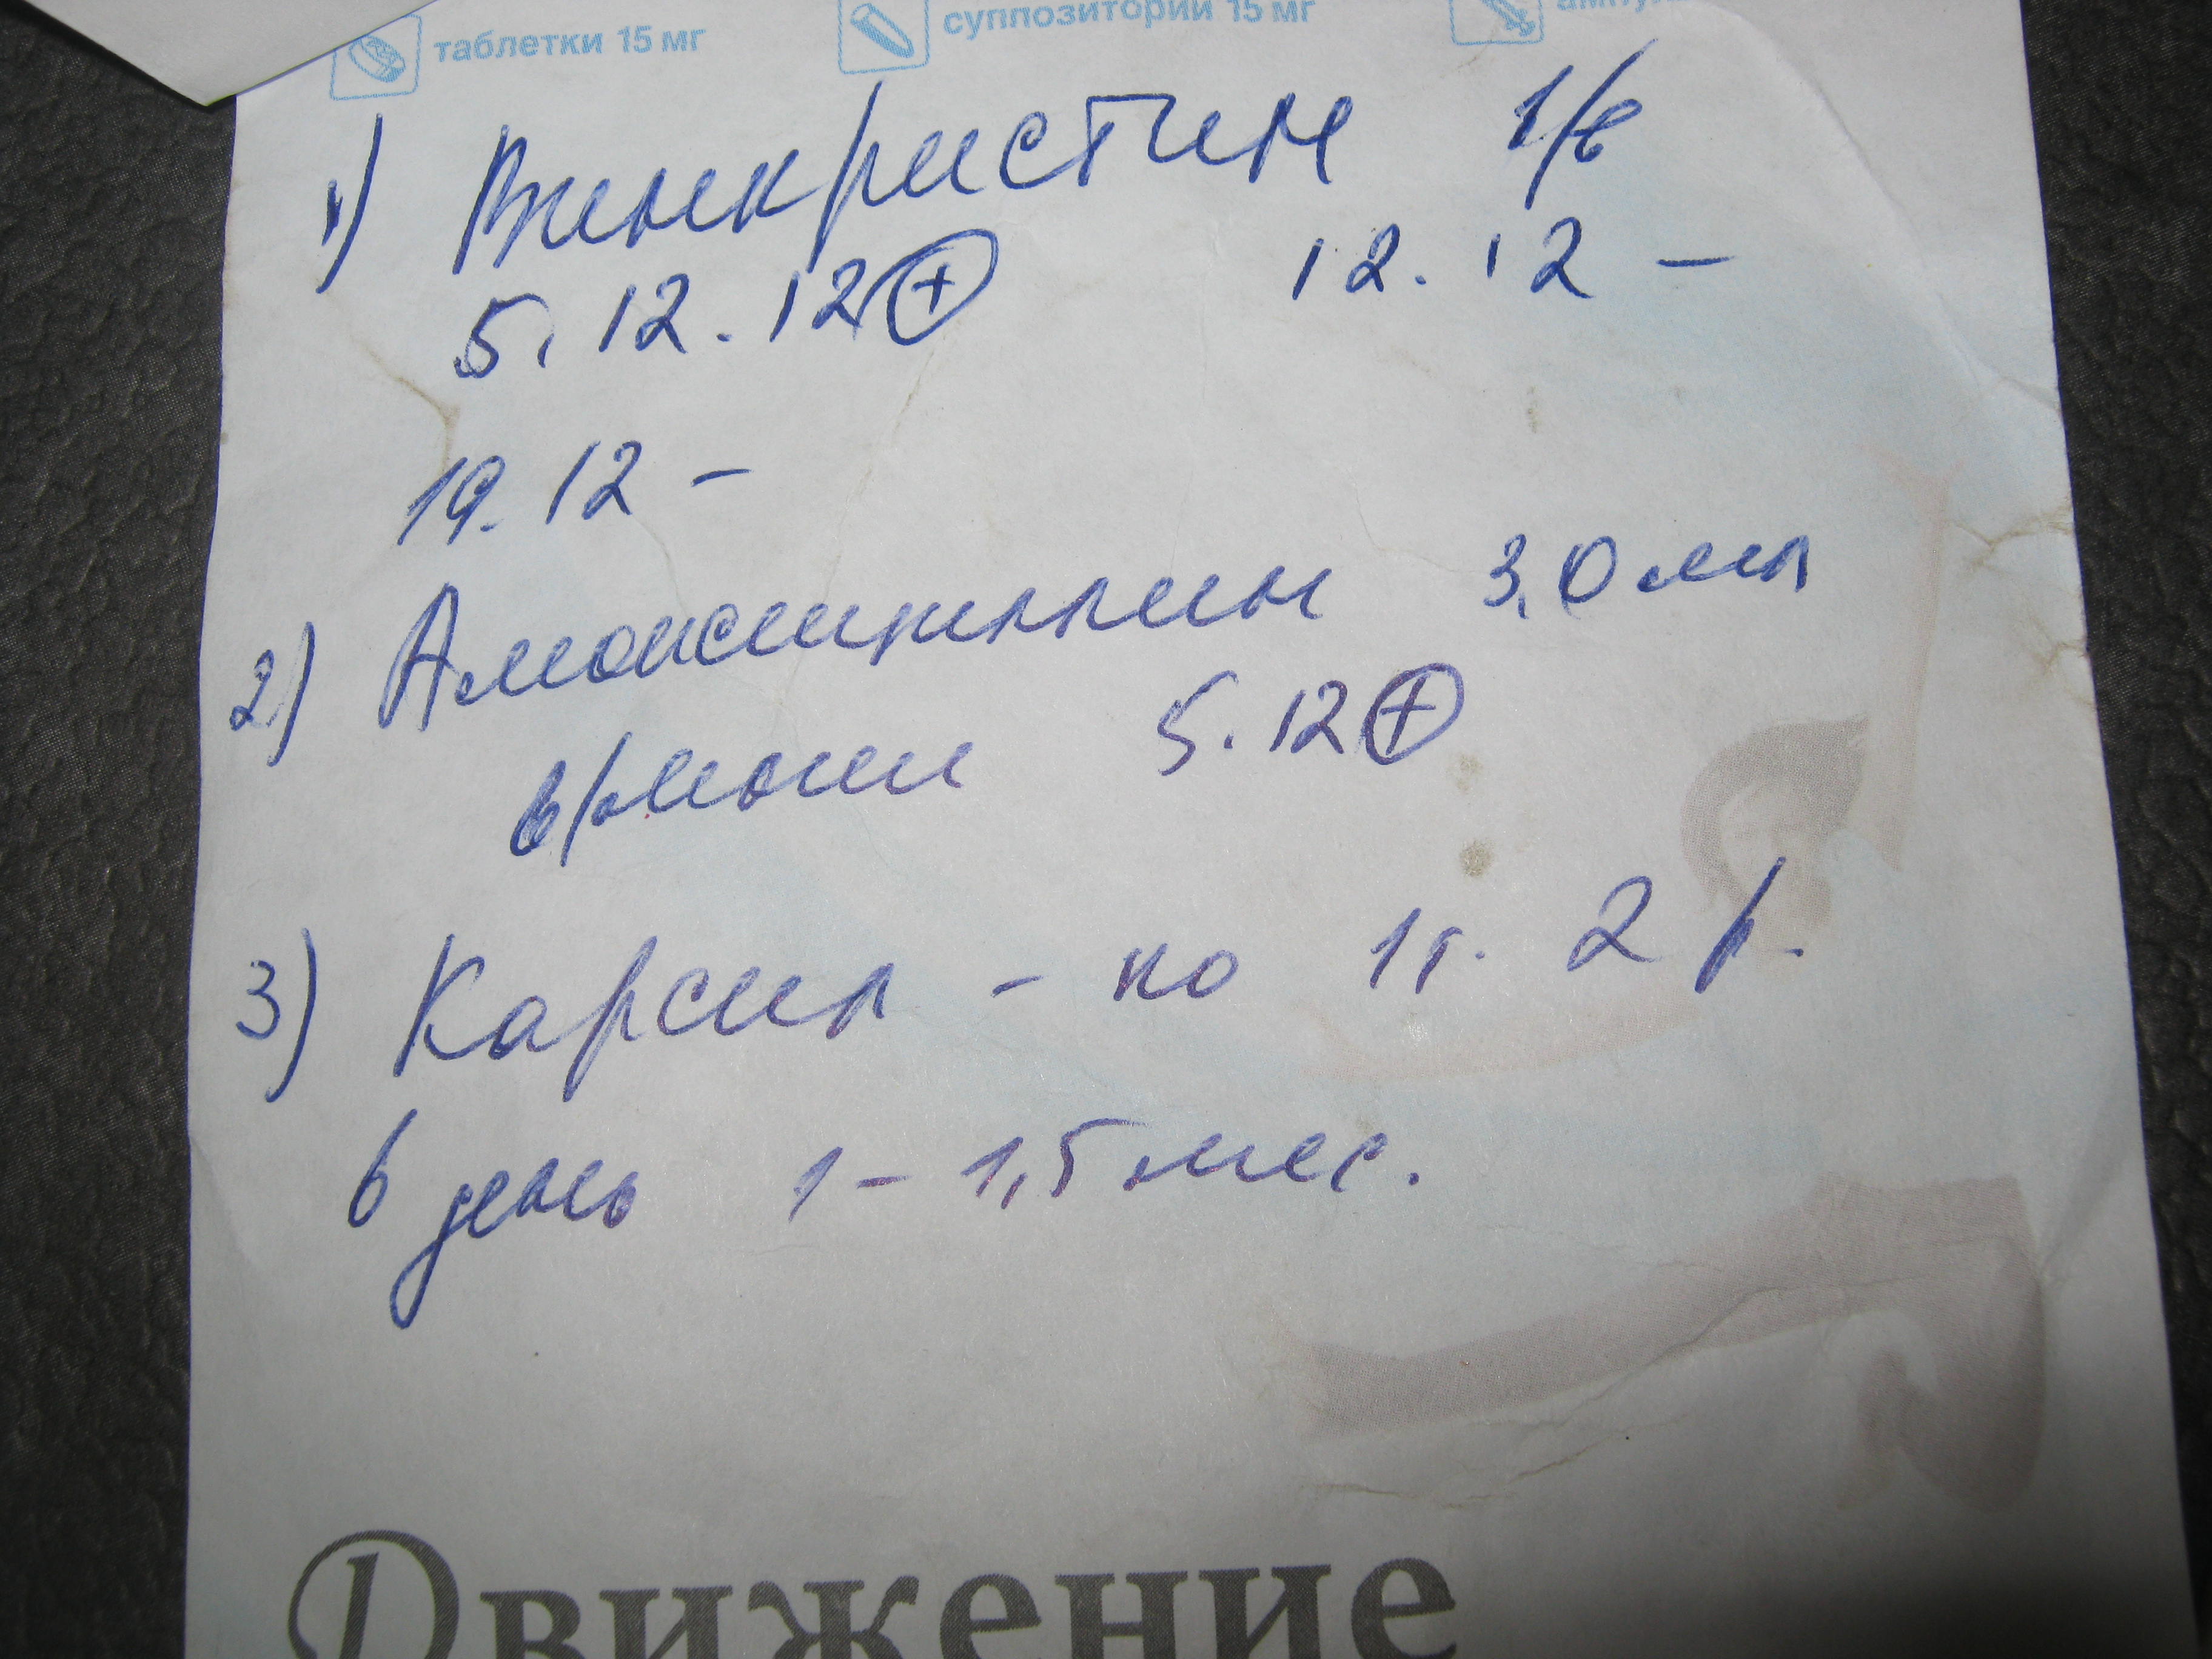 таблетки 15 мг суппозитории 15 мг
1) Винкристин в/в
5.12.12 ⊕ 12.12 –
19.12 –
2) Амоксициллин 3,0 мл
в/мыш 5.12 ⊕
3) Карсил – по 1т. 2 р.
в день 1 – 1,5 мес.
Движение